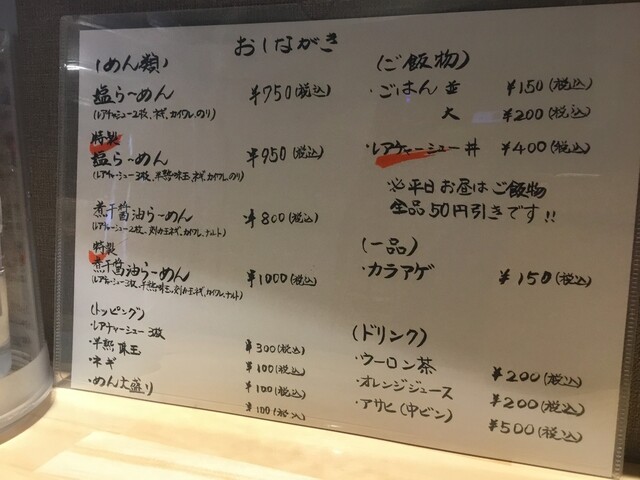 おしながき
(めん類)
塩らーめん ¥750(税込)
(レアチャーシュー2枚、ネギ、カイワレ、のり)
特製
塩らーめん ¥950(税込)
(レアチャーシュー3枚、半熟味玉、ネギ、カイワレ、のり)
煮干醤油らーめん ¥800(税込)
(レアチャーシュー2枚、刻み玉ネギ、カイワレ、ナルト)
特製
煮干醤油らーめん ¥1000(税込)
(レアチャーシュー3枚、半熟味玉、刻み玉ネギ、カイワレ、ナルト)
(トッピング)
・レアチャーシュー3枚 ¥300(税込)
・半熟味玉 ¥100(税込)
・ネギ ¥100(税込)
・めん大盛り ¥100(税込)
(ご飯物)
・ごはん 並 ¥150(税込)
大 ¥200(税込)
・レアチャーシュー丼 ¥400(税込)
※平日お昼はご飯物
全品50円引きです!!
(一品)
・カラアゲ ¥150(税込)
(ドリンク)
・ウーロン茶 ¥200(税込)
・オレンジジュース ¥200(税込)
・アサヒ(中ビン) ¥500(税込)